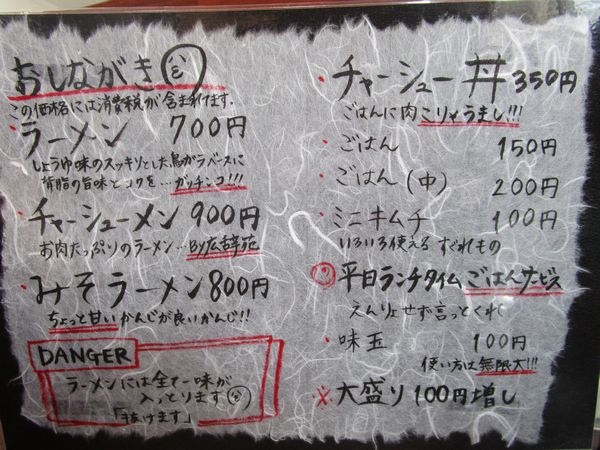 おしながき
この価格には消費税が含まれてます.
ラーメン 700円
しょうゆ味のスッキリとした鳥がらベースに
背脂の旨味とコクを…ガッチンコ!!!
チャーシューメン 900円
お肉たっぷりのラーメン…By広辞苑
みそラーメン 800円
ちょっと甘いかんじが良いかんじ!!
DANGER
ラーメンには全て一味が
入っとります
「抜けます」
チャーシュー丼 350円
ごはんに肉こりゃうまし!!!
ごはん 150円
ごはん(中) 200円
ミニキムチ 100円
いろいろ使える すぐれもの
平日ランチタイム ごはんサービス
えんりょせず言っとくれ
味玉 100円
使い方は無限大!!!
※大盛り100円増し